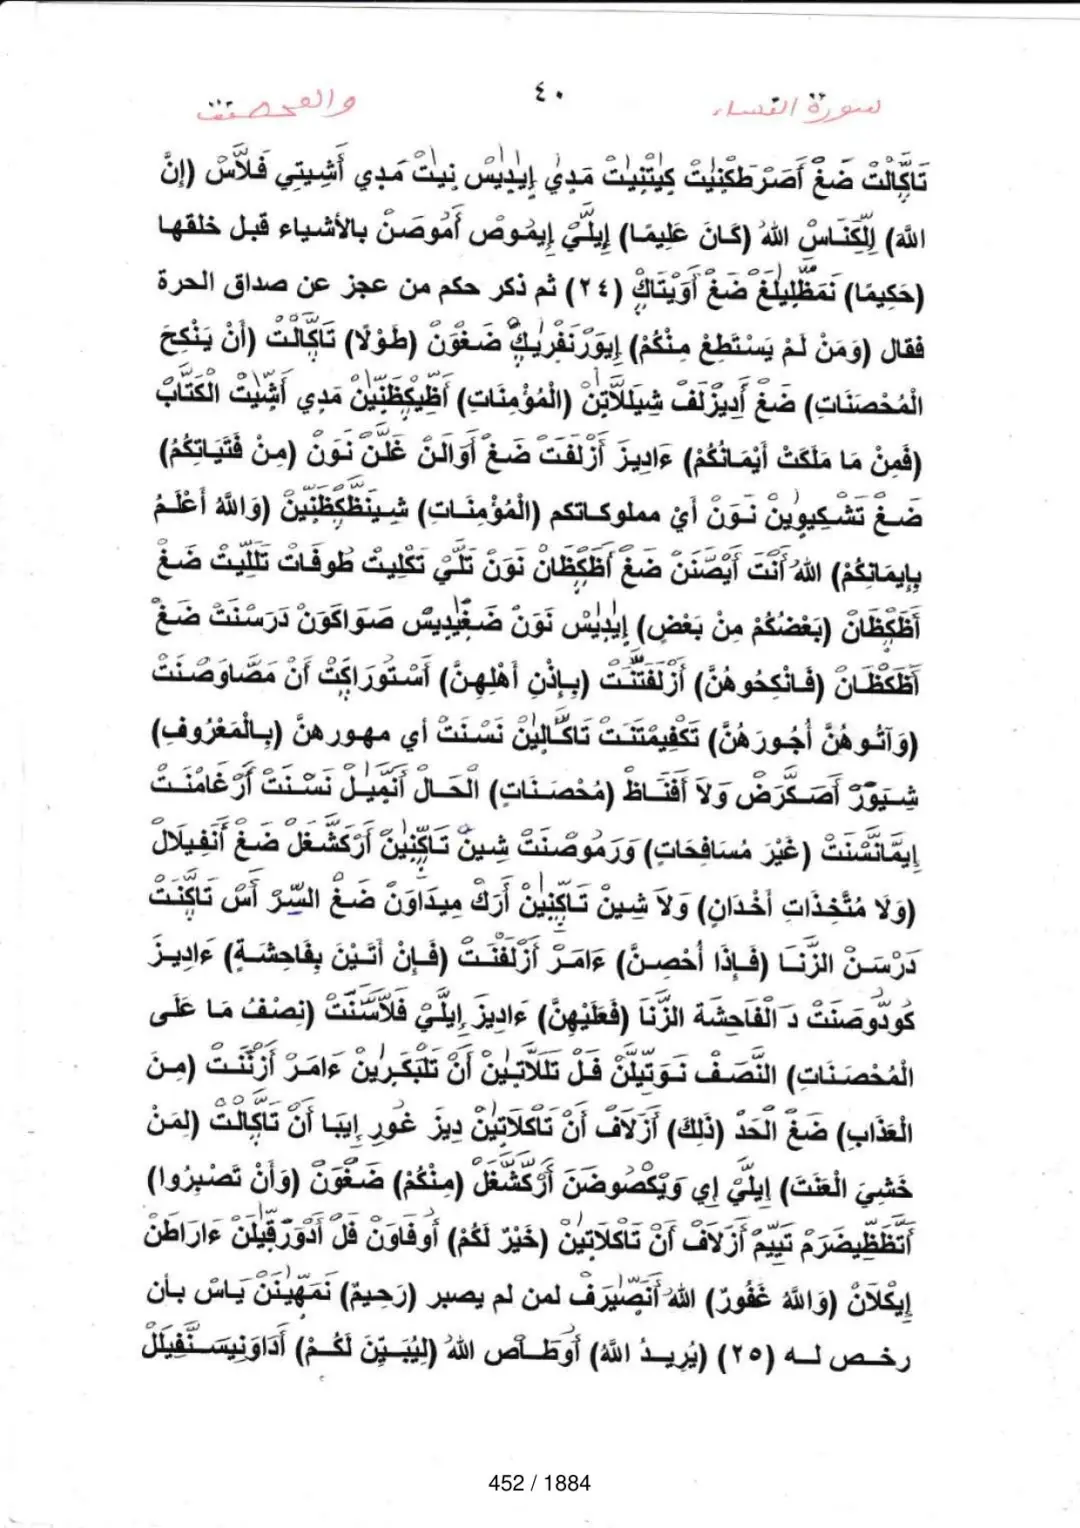 سورة النساء
٤٠
والمحصنت
تَاكَّالْتْ ضَغْ أَصَرْطَكْنِيتْ كِيتْنِيتْ مَدِيْ إِيدِيسْ نِيتْ مَدِي أَشِيتِي فَلَاَّسْ (إِنَّ
اللَّهَ) إِلِكَنَاسْ اللهُ (كَانَ عَلِيمًا) إِيلَيْ إِيمُوصْ أَمُوصَنْ بالأشياء قبل خلقها
(حَكِيمًا) نَمَظْلِيلَغْ ضَغْ أَوِيتَاكْ (٢٤) ثم ذكر حكم من عجز عن صداق الحرة
فقال (وَمَنْ لَمْ يَسْتَطِعْ مِنْكُمْ) إِيوَرْنَفْرِيكْ ضَغْوَنْ (طَوْلًا) تَاكَّالْتْ (أَنْ يَنْكِحَ
الْمُحْصَنَاتِ) ضَغْ أَدِيزْلَفْ شِيَلَلَّاتِنْ (الْمُؤْمِنَاتِ) أَظِيكَظَنِينْ مَدِي أَشِّيتْ الْكَتَّابْ
(فَمِنْ مَا مَلَكَتْ أَيْمَانُكُمْ) ءَادِيزَ أَزْلَفَتْ ضَغْ أَوَالَنْ غَلَنْ نَوَنْ (مِنْ فَتَيَاتِكُمُ)
ضَغْ تَشْكِيوِينْ نَوَنْ أيْ مملوكاتكم (الْمُؤْمِنَاتِ) شِينَظَكَظَنِّينْ (وَاللَّهُ أَعْلَمُ
بِإِيمَانِكُمْ) اللهُ أَنْتَ أَيْصَنَنْ ضَغْ أَظَكَظَانْ نَوَنْ تَلَيْ تَكْلِيتْ طُوفَاتْ تَلَلِّيتْ ضَغْ
أَظَكَظَانْ (بَعْضُكُمْ مِنْ بَعْضٍ) إِيدِيسْ نَوَنْ ضَغْيِدِيسْ صَوَاكَوَنْ دَرَسْنَتْ ضَغْ
أَظَكَظَانْ (فَانْكِحُوهُنَّ) أَزْلَفَتَنَتْ (بِإِذْنِ أَهْلِهِنَّ) أَسْتُورَاكَتْ أَنْ مَصَّاوَصْنَتْ
(وَآتُوهُنَّ أُجُورَهُنَّ) تَكْفِيمْتَنَتْ تَاكَّالِينْ نَسْنَتْ أي مهورهنَّ (بِالْمَعْرُوفِ)
شِيَوَرْ أَصَكَرَضْ وَلَا أَفْنَاظْ (مُحْصَنَاتٍ) الْحَالْ أَنْمِيلْ نَسْنَتْ أَرْغَامْنَتْ
إِيمَانَّسْنَتْ (غَيْرَ مُسَافِحَاتٍ) وَرَمُوصْنَتْ شِينْ تَاكِّنِينْ أَرْكَشْغَلْ ضَغْ أَنْفِيلَالْ
(وَلَا مُتَّخِذَاتِ أَخْدَانٍ) وَلَا شِينْ تَاكِّنِينْ أَرَكْ مِيدَاوَنْ ضَغْ السِّرْ أَسْ تَاكْنَتْ
دَرَسَنْ الزِّنَا (فَإِذَا أُحْصِنَّ) ءَامَرْ أَزْلَفْنَتْ (فَإِنْ أَتَيْنَ بِفَاحِشَةٍ) ءَادِيزَ
كُودُوصَنَتْ دَ الْفَاحِشَة الزِّنَا (فَعَلَيْهِنَّ) ءَادِيزَ إِيلَيْ فَلَاَّسْنَتْ (نِصْفُ مَا عَلَى
الْمُحْصَنَاتِ) النَّصَفْ نَوَتِيلَّنْ فَلْ تَلَلَّاتِينْ أَنْ تَلْبَكَرِينْ ءَامَرْ أَزْنَنَتْ (مِنَ
الْعَذَابِ) ضَغْ الْحَدّ (ذَلِكَ) أَزَلَافْ أَنْ تَاكَلَاتِينْ دِيزَ غُورِ إِيبَا أَنْ تَاكَّالْتْ (لِمَنْ
خَشِيَ الْعَنَتَ) إِيلَيْ إِي وَيْكْصُوضَنَ أَرْكَشَّغَلْ (مِنْكُمْ) ضَغْوَنْ (وَأَنْ تَصْبِرُوا)
أَتَظَظِيضَرَمْ تَيِيمْ أَزَلَافْ أَنْ تَاكَلَاتِينْ (خَيْرٌ لَكُمْ) أُوفَاوَنْ فَلْ أَدْوَرَقِيلَنْ ءَارَاطَنْ
إِيكْلَانْ (وَاللَّهُ غَفُورٌ) اللهُ أَنَصِيرَفْ لمن لم يصبر (رَحِيمٌ) نَمَهِّينَنْ يَاسْ بأن
رخص له (٢٥) (يُرِيدُ اللَّهُ) أُوطَاصْ اللهُ (لِيُبَيِّنَ لَكُمْ) أَدَاوَنِيسَنَّفِيلَلْ
452 / 1884